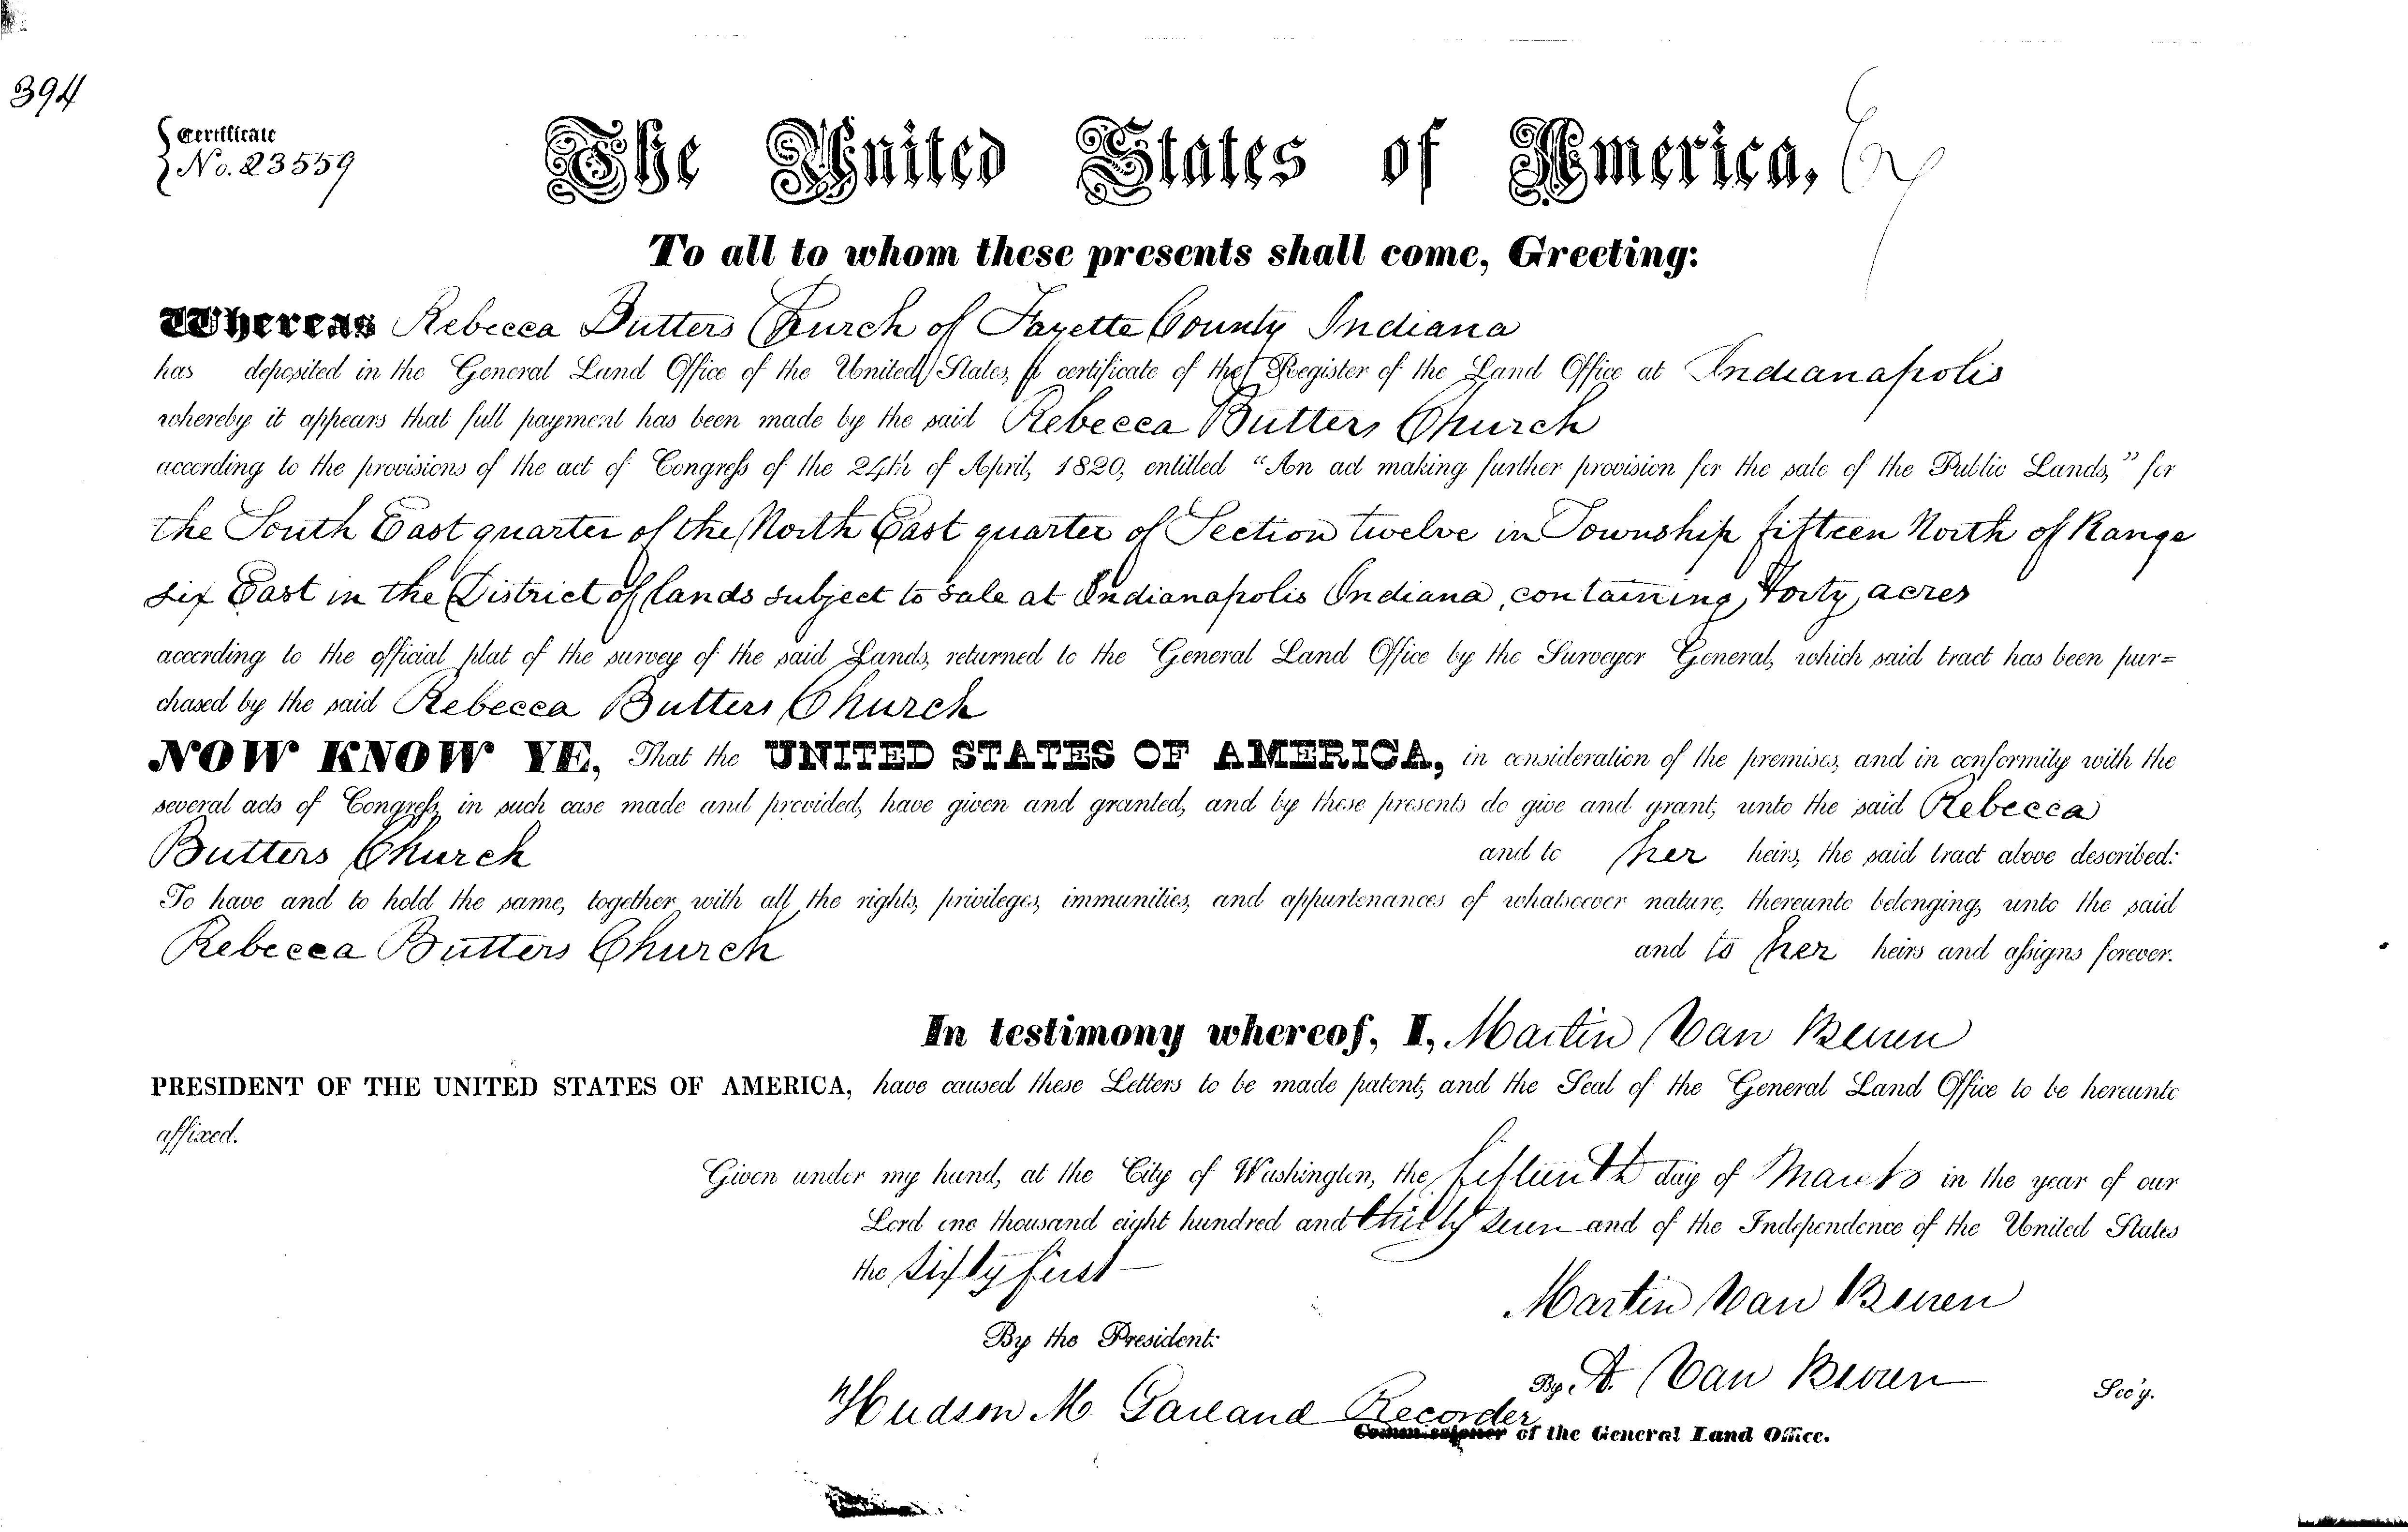 394
Certificate
No. 23559
The United States of America,
To all to whom these presents shall come, Greeting:
Whereas Rebecca Butters Church of Fayette County Indiana
has deposited in the General Land Office of the United States, a certificate of the Register of the Land Office at Indianapolis
whereby it appears that full payment has been made by the said Rebecca Butters Church
according to the provisions of the act of Congress of the 24th of April, 1820, entitled "An act making further provision for the sale of the Public Lands," for
the South East quarter of the North East quarter of Section twelve in Township fifteen North of Range
six East in the District of lands subject to sale at Indianapolis Indiana, containing Forty acres
according to the official plat of the survey of the said Lands, returned to the General Land Office by the Surveyor General, which said tract has been pur=
chased by the said Rebecca Butters Church
NOW KNOW YE, That the UNITED STATES OF AMERICA, in consideration of the premises, and in conformity with the
several acts of Congress, in such case made and provided, have given and granted, and by these presents do give and grant, unto the said Rebecca
Butters Church and to her heirs, the said tract above described:
To have and to hold the same, together with all the rights, privileges, immunities, and appurtenances of whatsoever nature, thereunto belonging, unto the said
Rebecca Butters Church and to her heirs and assigns forever.
In testimony whereof, I, Martin Van Buren
PRESIDENT OF THE UNITED STATES OF AMERICA, have caused these Letters to be made patent, and the Seal of the General Land Office to be hereunto
affixed.
Given under my hand, at the City of Washington, the fifteenth day of March in the year of our
Lord one thousand eight hundred and thirty seven and of the Independence of the United States
the sixty first
Martin Van Buren
By the President:
By A. Van Buren Sec'y.
Hudson M. Garland Recorder
Commissioner of the General Land Office.